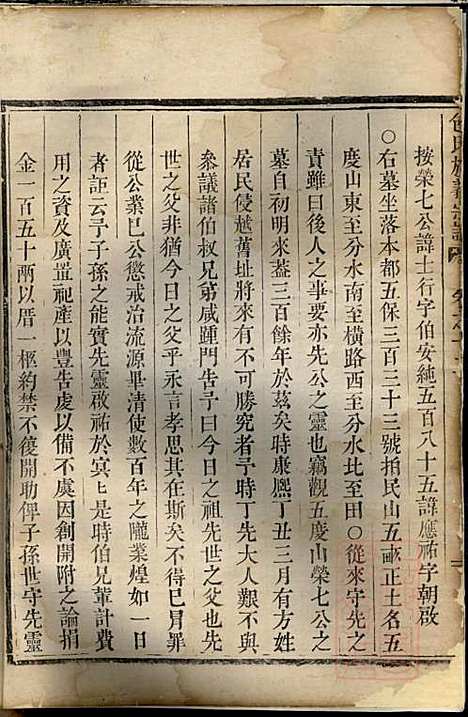 按榮七公諱士行字伯安純五百八十五諱應祐字朝啟
○右墓坐落本都五保三百三十三號拍民山五畝正土名五
度山東至分水南至橫路西至分水比至田○從來守先之
責雖曰後人之事要亦先公之靈也竊觀五度山榮七公之
墓自初明來葢三百餘年於茲矣時康熈丁丑三月有方姓
居民侵越舊址將來有不可勝究者予時丁先大人艱不與
參議諸伯叔兄弟咸踵門告予曰今日之祖先世之父也先
世之父非猶今日之父乎永言孝思其在斯矣不得已冐罪
從公業已公懲戒治流源畢清使數百年之隴業煌如一日
者詎云予子孫之能實先靈啟祐於冥冥是時伯兄輩計費
用之資及廣置祀產以豐告處以備不虞因創開附之論捐
金一百五十兩以厝一柩約禁不復開助俾子孫世守先靈